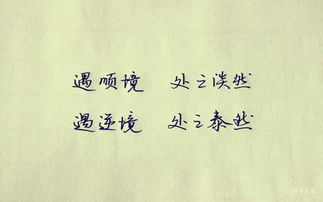 遇顺境 处之淡然
遇逆境 处之泰然